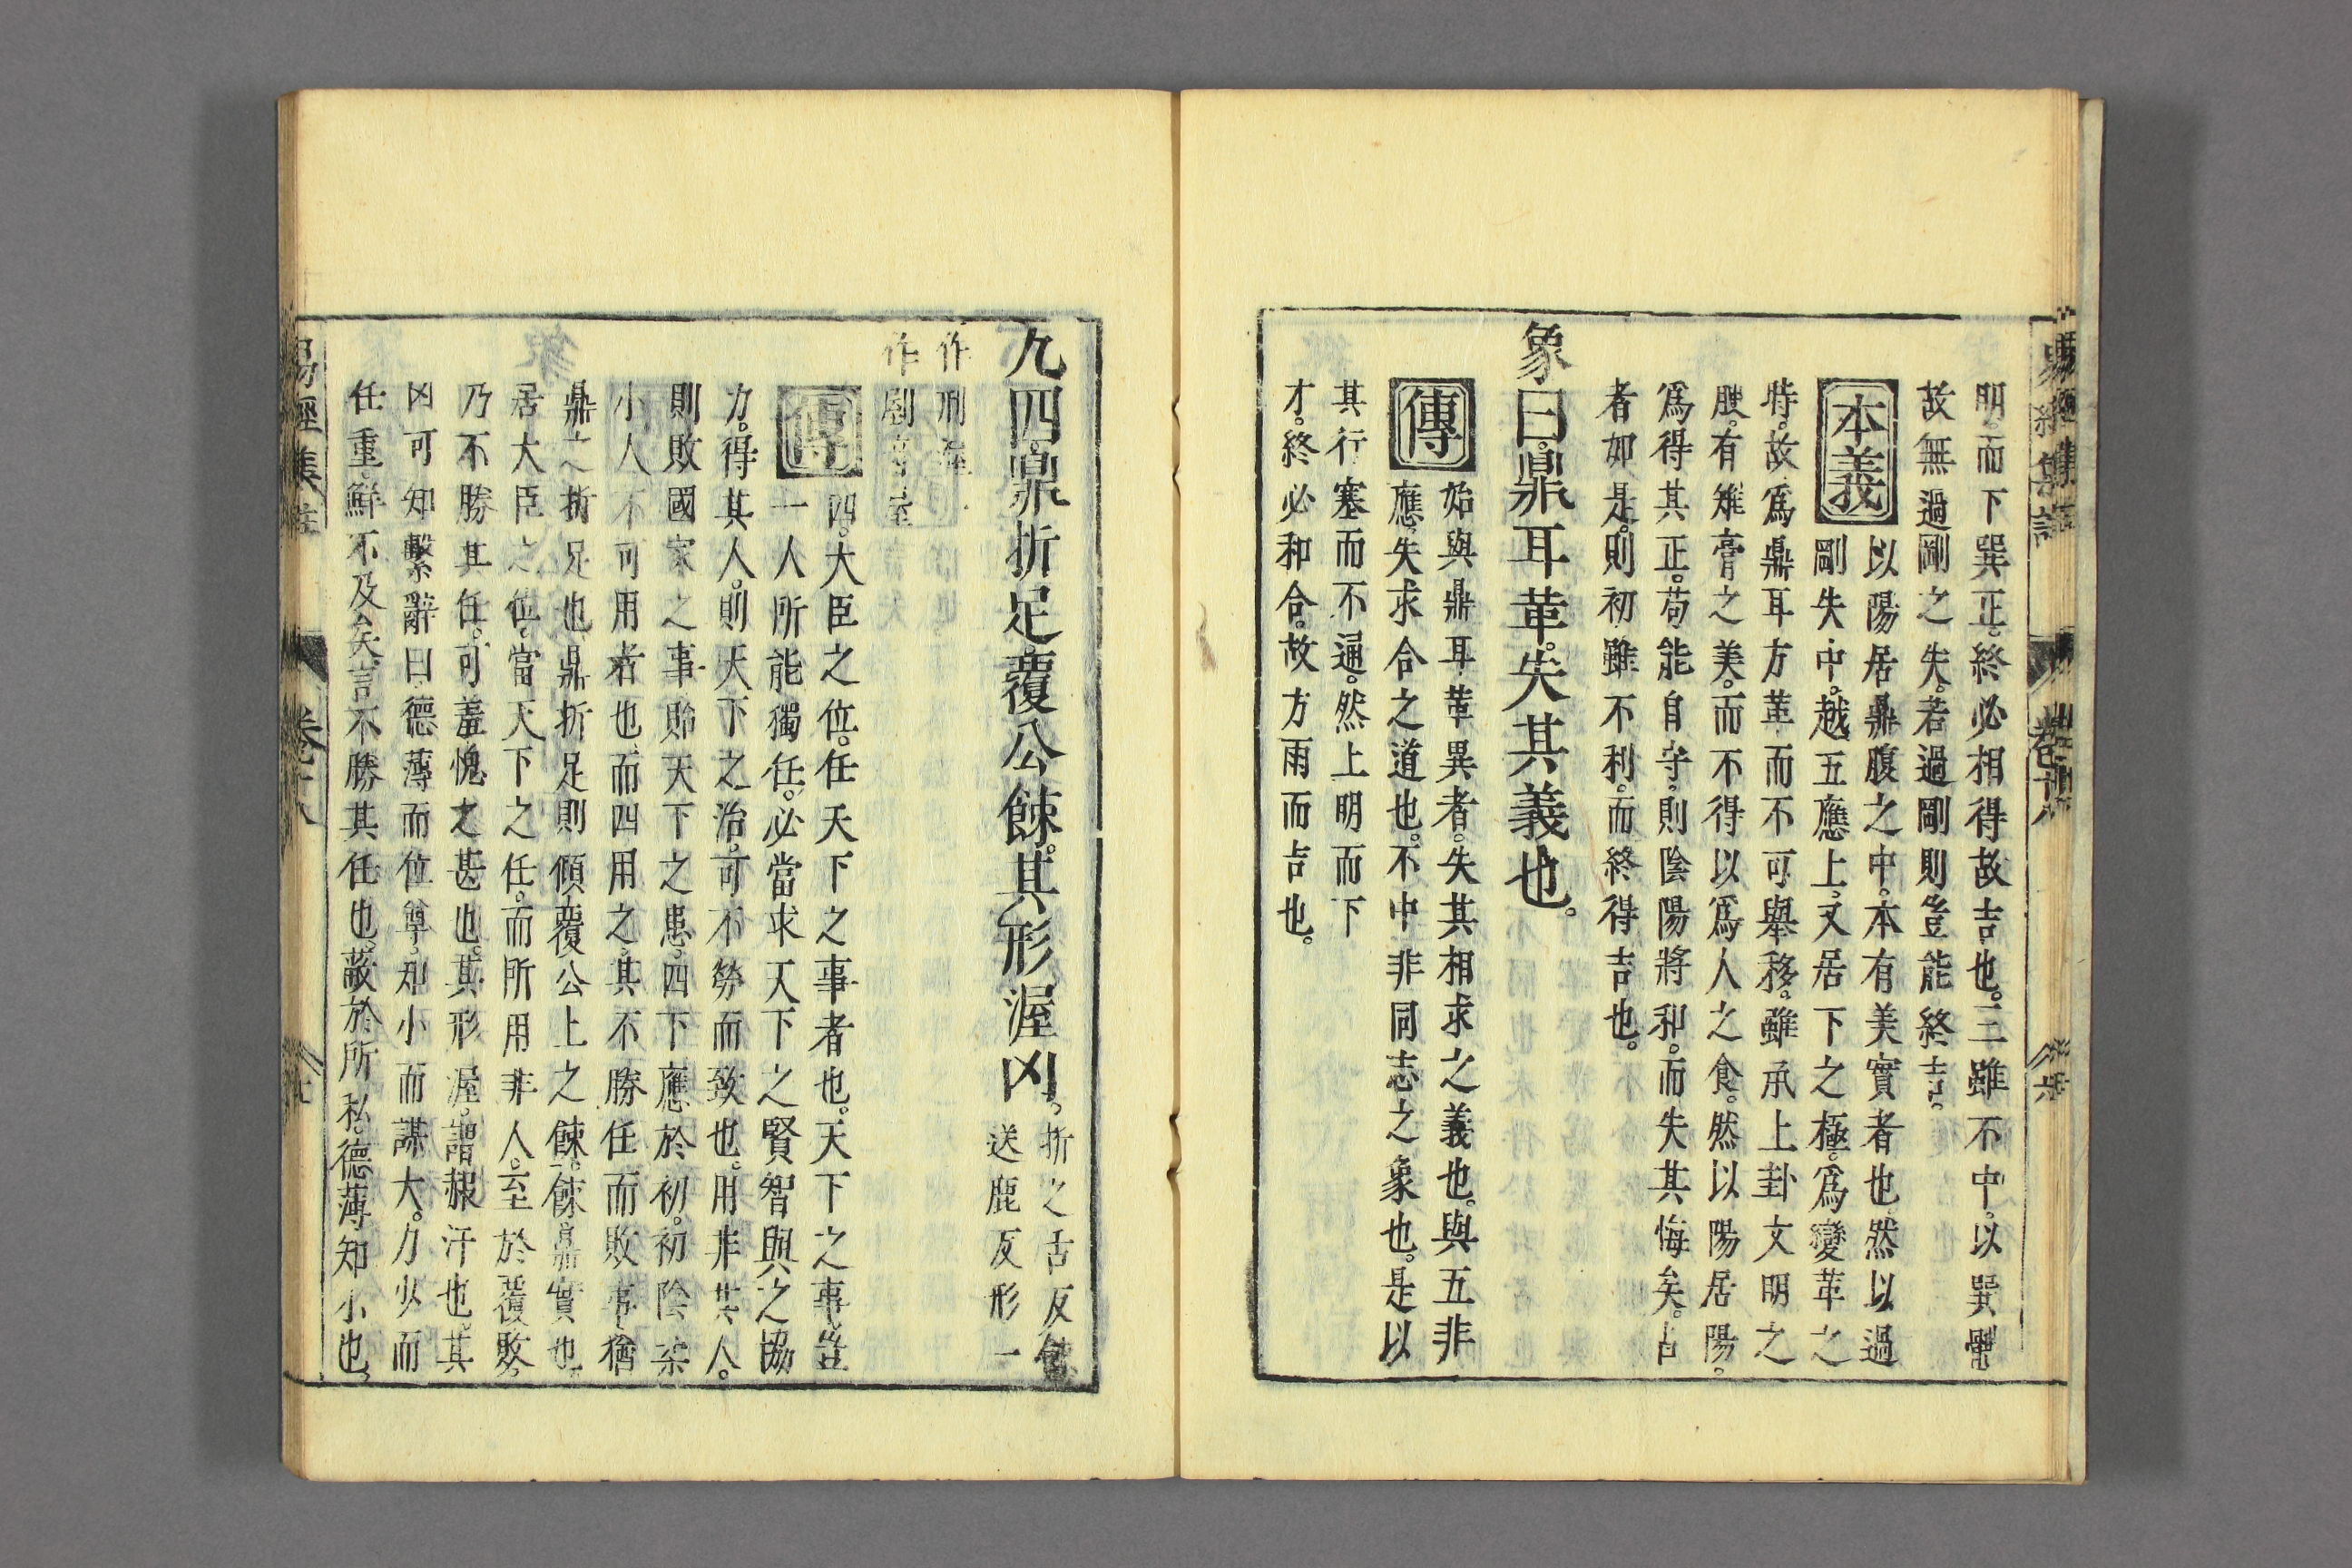 明。而下巽正。終必相得故吉也。三雖不中。以巽體
故無過剛之失。若過剛則豈能終吉。
本義
以陽居鼎腹之中。本有美實者也。然以過
剛失中。越五應上。又居下之極。爲變革之
時。故爲鼎耳方革而不可舉移。雖承上卦文明之
腴。有雉膏之美。而不得以爲人之食。然以陽居陽。
爲得其正。苟能自守。則陰陽將和。而失其悔矣。占
者如是。則初雖不利。而終得吉也。
象曰。鼎耳革。失其義也。
傳
始與鼎耳革異者。失其相求之義也。與五非
應。失求合之道也。不中非同志之象也。是以
其行塞而不通。然上明而下
才。終必和合。故方雨而吉也。
九四。鼎折足。覆公餗。其形渥。凶。
折之舌反餗
送鹿反形一
作刑渥一
作剭音屋
傳
四。大臣之位。任天下之事者也。天下之事。豈
一人所能獨任。必當求天下之賢智與之協
力。得其人。則天下之治。可不勞而致也。用非其人。
則敗國家之事。貽天下之患。四下應於初。初陰柔
小人。不可用者也。而四用之。其不勝任而敗事。猶
鼎之折足也。鼎折足則傾覆公上之餗。餗。鼎實也。
居大臣之位。當天下之任。而所用非人。至於覆敗。
乃不勝其任。可羞愧之甚也。其形渥。謂赧汗也。其
凶可知繫辭曰。德薄而位尊。知小而謀大。力少而
任重。鮮不及矣。言不勝其任也。蔽於所私。德薄知小也。
易經集註
卷十八
七